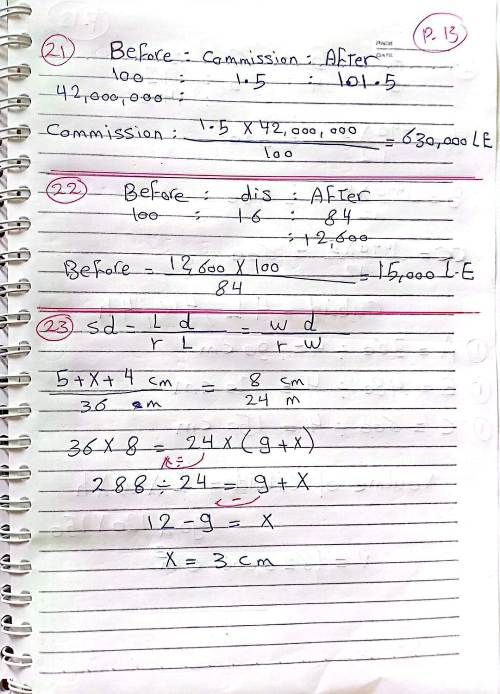 P. 13
PAGE
DATE
21 Before : Commission : After
100 : 1.5 : 101.5
42,000,000 :
Commission : 1.5 X 42,000,000 / 100 = 630,000 LE
22 Before : dis : After
100 : 16 : 84
: 12,600
Before = 12,600 X 100 / 84 = 15,000 L.E
23 sd = L d / r L = w d / r w
5 + X + 4 cm / 36 m = 8 cm / 24 m
36 X 8 = 24 X (9 + X)
÷
288 ÷ 24 = 9 + X
-
12 - 9 = X
X = 3 cm